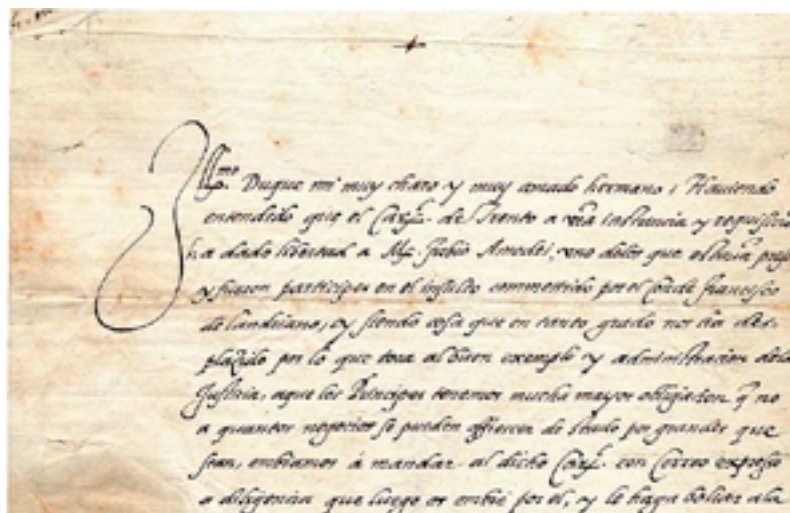 Illmo. Duque mi muy charo y muy amado hermano; Haviendo
entendido que el Carl. de Trento a vra instancia y requisicion
ha dado libertad a Mr. Julio Amodei, uno delos que el tenia presos
y fueron participes en el insulto commettido por el Conde Francisco
de Landriano; y siendo cosa que en tanto grado nos ha des-
plazido por lo que toca al buen exemplo y administracion dela
Justicia, aque los Principes tenemos mucha mayor obligacion q̃ no
a quantos negocios se pueden offrescer de stado por grandes que
sean, embiamos á mandar al dicho Carl. con Correo expresso
a diligencia que luego os embie por el, y le haga bolver ala